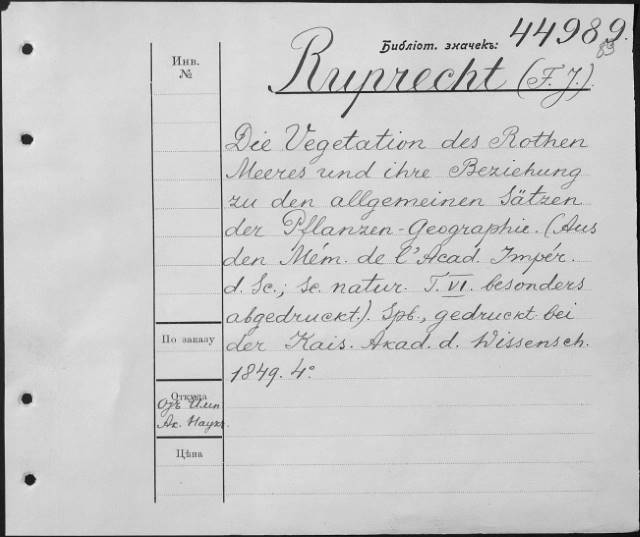 Библіот. значекъ: 44989.
83
Инв.
№
Ruprecht (F. J.).
Die Vegetation des Rothen
Meeres und ihre Beziehung
zu den allgemeinen Sätzen
der Pflanzen-Geographie. (Aus
den Mém. de l'Acad. Impér.
d. Sc.; Sc. natur. T. VI. besonders
abgedruckt.). Spb., gedruckt bei
der Kais. Akad. d. Wissensch.
1849. 4°
По заказу
Откуда
Отъ Имп.
Ак. Наукъ.
Цѣна